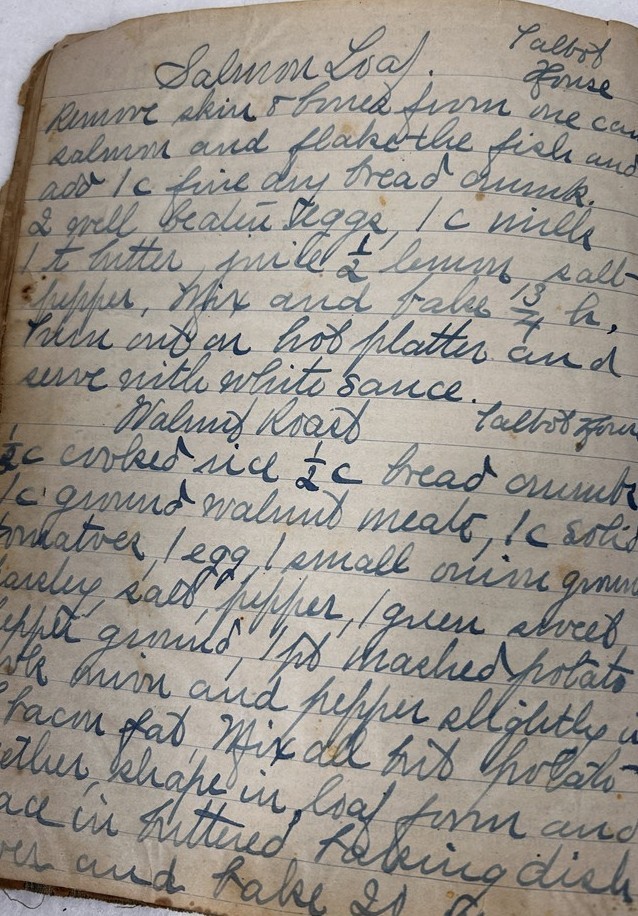 Salmon Loaf. Talbot
House
Remove skin & bones from one can
salmon and flake the fish and
add 1 c fine dry bread crumbs.
2 well beaten eggs, 1 c milk
1 t butter juice 1/2 lemon salt
pepper, Mix and bake 13/4 h,
turn out on hot platter and
serve with white sauce.
Walnut Roast Talbot House
1/2 c cooked rice 1/2 c bread crumbs
1 c ground walnut meats, 1 c solid
tomatoes, 1 egg, 1 small onion ground
parsley, salt, pepper, 1 green sweet
pepper ground, 1 pt mashed potato
onion and pepper slightly in
bacon fat, Mix all but potato
together, shape in loaf form and
place in buttered baking dish
and bake 20